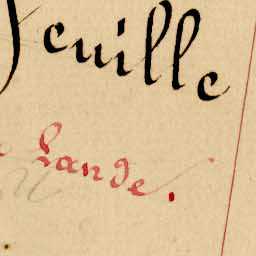 Feuille
Lande.